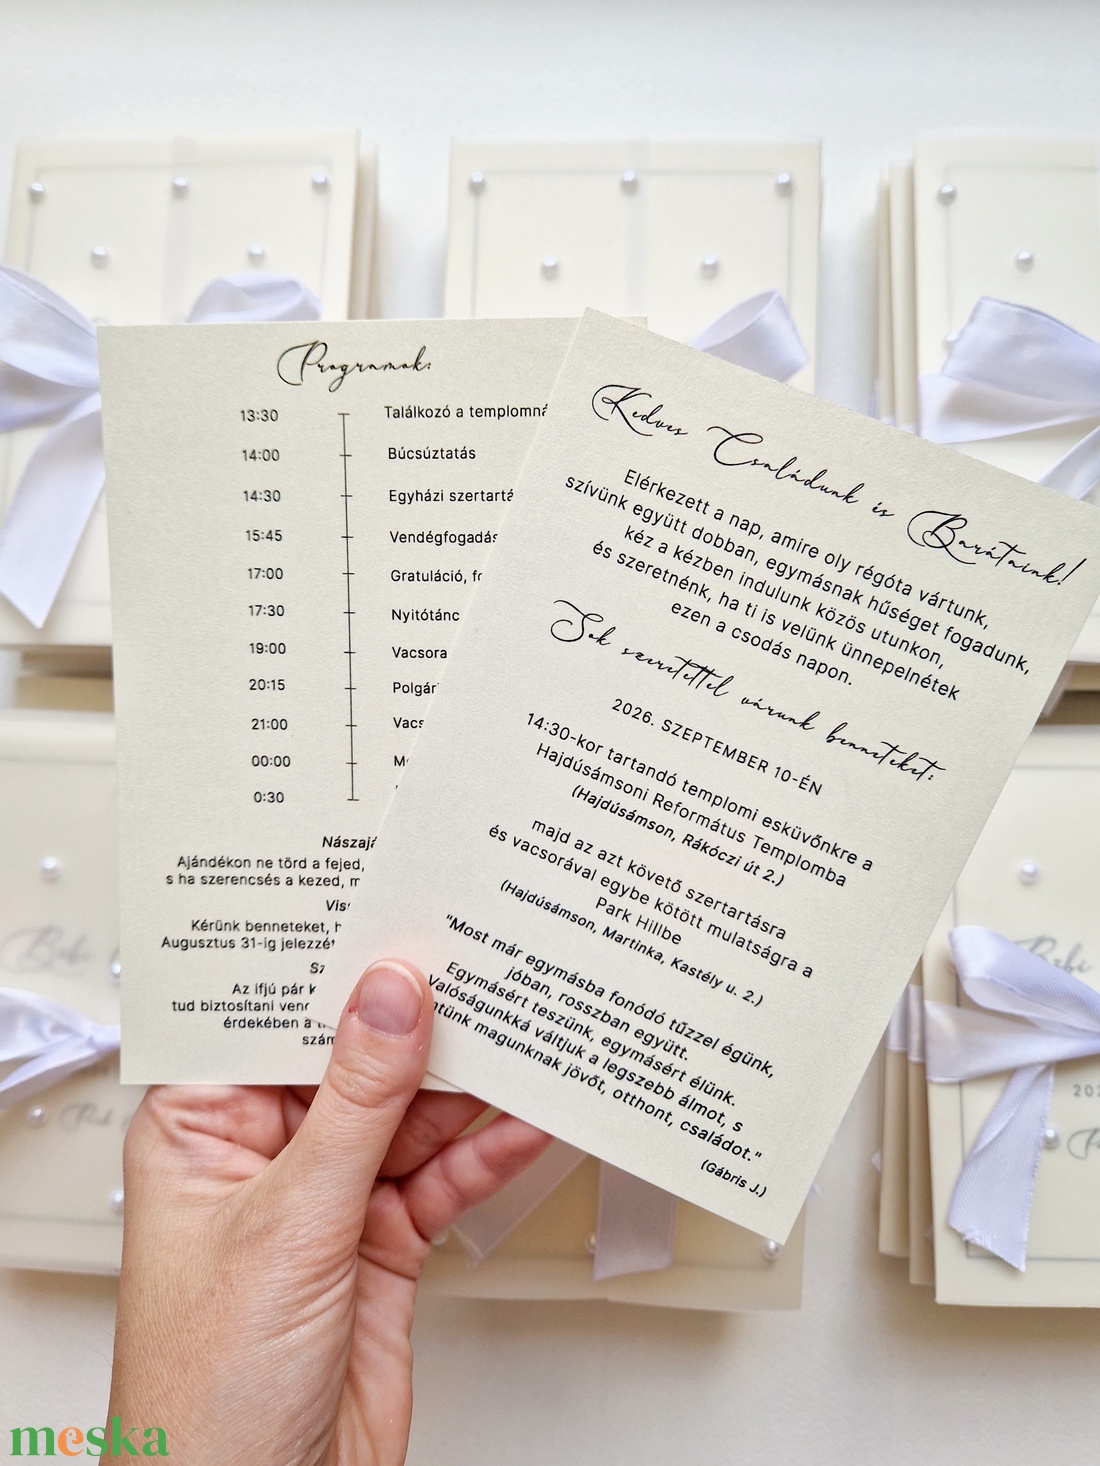 Programok:
13:30 Találkozó a templomná
14:00 Búcsúztatás
14:30 Egyházi szertartá
15:45 Vendégfogadás
17:00 Gratuláció, fo
17:30 Nyitótánc
19:00 Vacsora
20:15 Polgár
21:00 Vacs
00:00 M
0:30
Nászajá
Ajándékon ne törd a fejed,
s ha szerencsés a kezed, m
Vis
Kérünk benneteket, h
Augusztus 31-ig jelezzét
Sz
Az ifjú pár k
tud biztosítani vend
érdekében a
szám
Kedves Családunk és Barátaink!
Elérkezett a nap, amire oly régóta vártunk,
szívünk együtt dobban, egymásnak hűséget fogadunk,
kéz a kézben indulunk közös utunkon,
és szeretnénk, ha ti is velünk ünnepelnétek
ezen a csodás napon.
Sok szeretettel várunk benneteket:
2026. SZEPTEMBER 10-ÉN
14:30-kor tartandó templomi esküvőnkre a
Hajdúsámsoni Református Templomba
(Hajdúsámson, Rákóczi út 2.)
majd az azt követő szertartásra
és vacsorával egybe kötött mulatságra a
Park Hillbe
(Hajdúsámson, Martinka, Kastély u. 2.)
"Most már egymásba fonódó tűzzel égünk,
jóban, rosszban együtt.
Egymásért teszünk, egymásért élünk.
Valóságunkká váltjuk a legszebb álmot, s
ntünk magunknak jövőt, otthont, családot."
(Gábris J.)
Bebi
202
meska